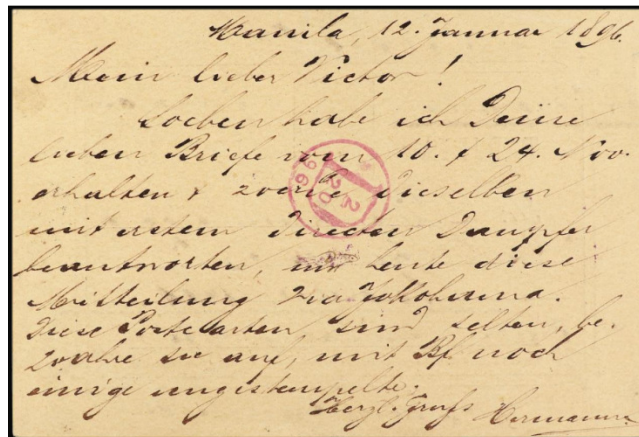 Manila, 12. Januar 1896.
Mein lieber Victor!
Soeben habe ich Deine
lieben Briefe vom 10. & 24. Nov.
erhalten & werde dieselben
mit erstem directen Dampfer
beantworten, nur heute diese
Mitteilung via Yokohama.
Diese Postcarten sind selten, be-
wahre sie auf, mit Bf noch
einige ungestempelte.
Herzl. Gruss Hermann
2
20
96